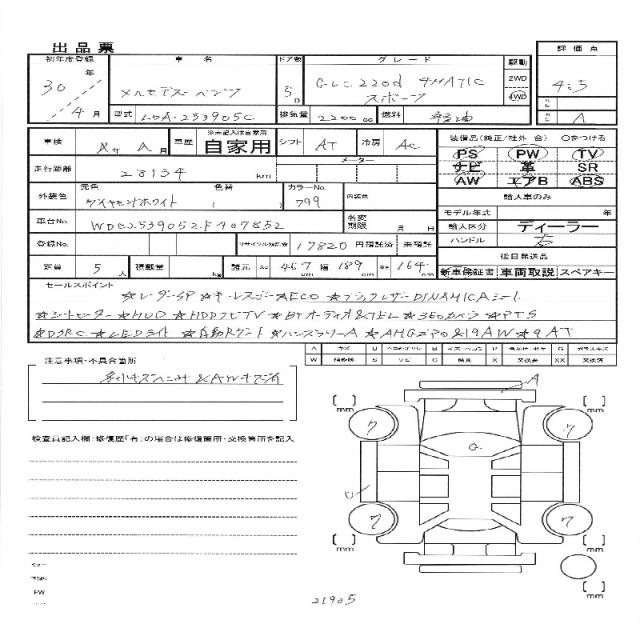 出品票
初年度登録 車名 ドア数 グレード 駆動 評価点
30 年 メルセデス・ベンツ 5 D GLC 220d 4MATIC スポーツ 2WD 4WD 4.5
4 月 型式 LDA-253905C 排気量 2200 cc 燃料 軽油 A
車検 年 月 車歴 ※未記入は自家用 自家用 シフト AT 冷房 AC 装備品(純正/社外 合) ○をつける
走行距離 28134 km メーター PS PW TV
ナビ 革 SR
AW エアB ABS
外装色 元色 ダイヤモンドホワイト 色替 カラーNo. 799 内装色 輸入車のみ
モデル年式 年
車台No. WDC2539052F407852 名変期限 月 日 輸入区分 ディーラー
登録No. リサイクル預託金 17820 円預託済 未預託 ハンドル 右
定員 5 人 積載量 kg 諸元 長さ 467 幅 189 高さ 164 cm 後日発送品
新車保証書 車両取説 スペアキー
セールスポイント
★レーダーSP ★キーレスゴー ★ECO ★ブラックレザーDINAMICAシート
★シートヒーター ★HUD ★HDDナビTV ★BTオーディオ&TEL ★360°カメラ ★PTS
★DSRC ★LEDライト ★自動Rゲート ★AMG ★19AW ★9AT
注意事項・不具合箇所
検査員記入欄:修復歴「有」の場合は修復箇所・交換箇所を記入
A キズ U W S サビ C P X 交換要 XX 交換済 G ガラスキズ
A
[ ] mm [ ] mm
7 7
G
U
7 7
[ ] mm [ ] mm
[ ] mm
PW
21905